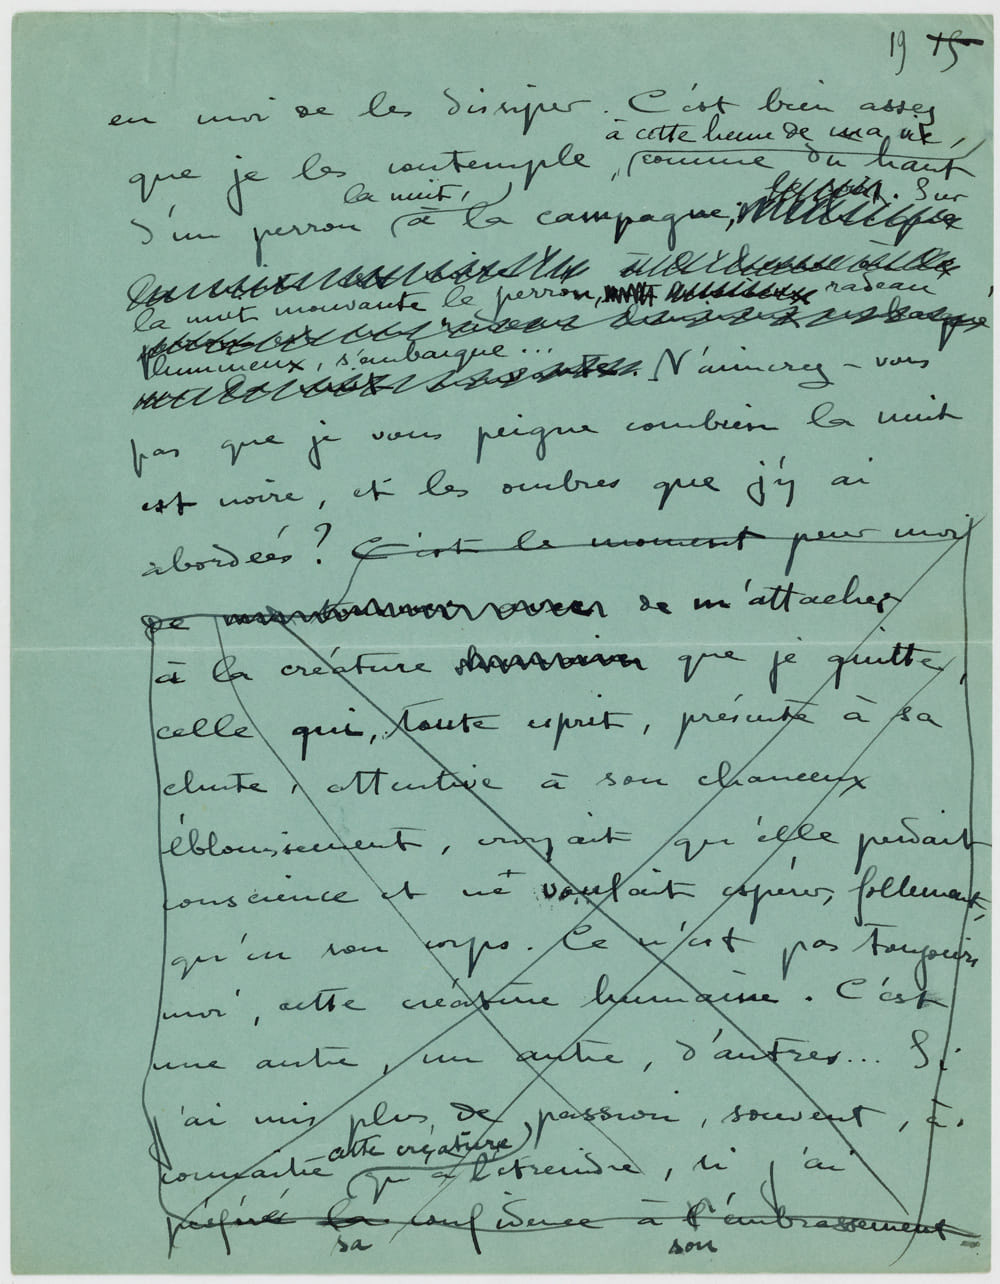 19 15
en moi de les dissiper. C'est bien assez
à cette heure de ma vie,
que je les contemple, comme du haut
la nuit,
le soir. Sur
d'un perron à la campagne,
la nuit mouvante le perron, radeau
lumineux, s'embarque...
N'aimerez-vous
pas que je vous peigne combien la nuit
est noire, et les ombres que j'y ai
abordées? C'est le moment pour moi
de de m'attacher
à la créature que je quitte,
celle qui, toute esprit, présente à sa
chute, attentive à son chanceux
éblouissement, croyait qu'elle perdait
conscience et ne voulait espérer, follement,
qu'en son corps. Ce n'est pas toujours
moi, cette créature humaine. C'est
une autre, un autre, d'autres... Si
j'ai mis plus de passion, souvent, à
cette créature
connaître qu'à l'étreindre, si j'ai
préféré la confidence à l'embrassement
sa son